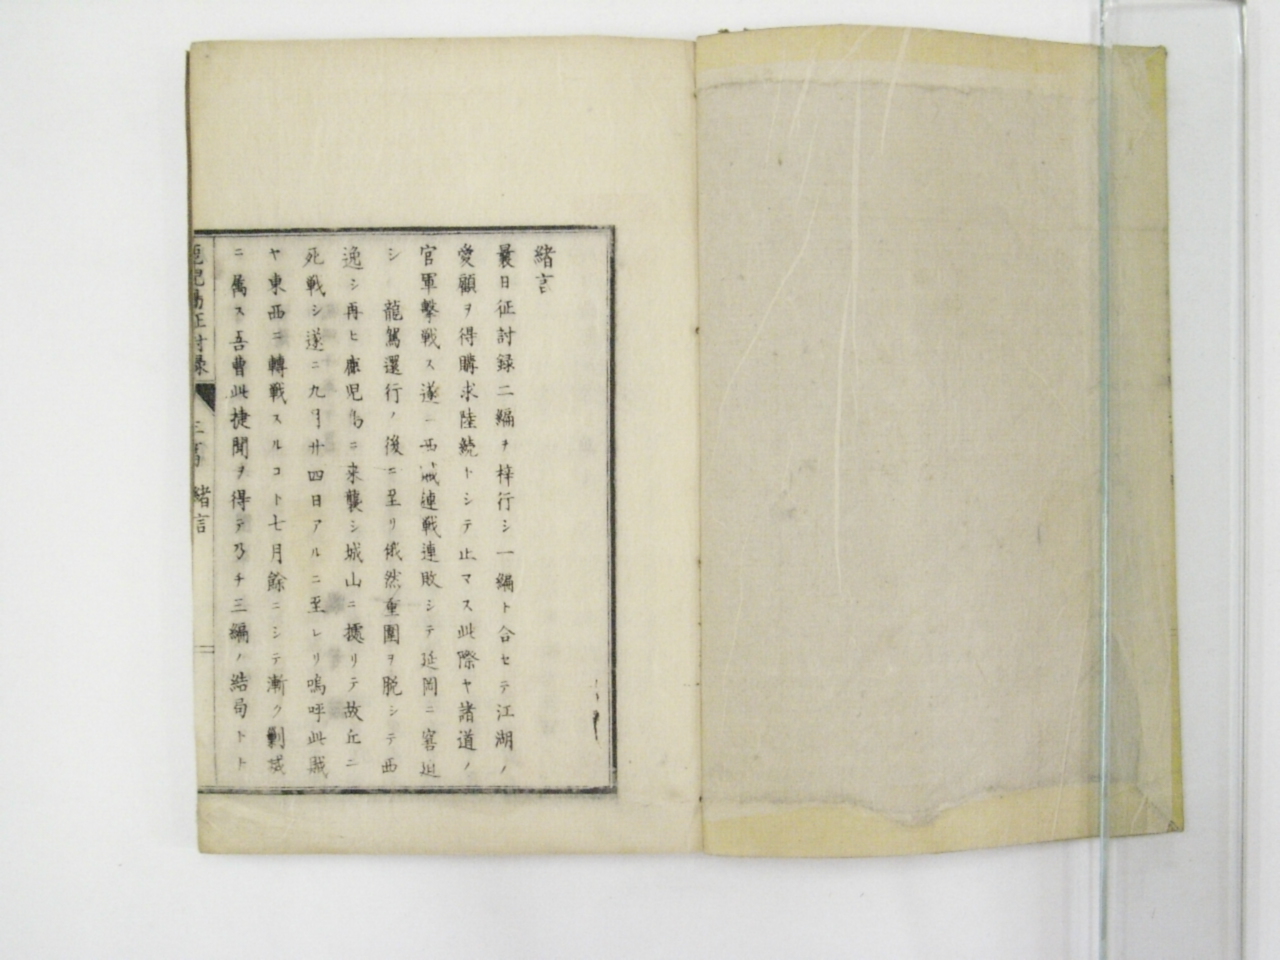 緒言
曩日征討録二編ヲ梓行シ一編ト合セテ江湖ノ
愛顧ヲ得購求陸続トシテ止マス此際ヤ諸道ノ
官軍撃戦ス遂ニ西賊連戦連敗シテ延岡ニ窘迫
シ 龍駕還行ノ後ニ至リ俄然重圍ヲ脱シテ西
逸シ再ヒ鹿児島ニ来襲シ城山ニ據リテ故丘ニ
死戦シ遂ニ九月廿四日アルニ至レリ嗚呼此賊
ヤ東西ニ轉戦スルコト七月餘ニシテ漸ク剿滅
ニ属ス吾曹此捷聞ヲ得テ乃チ三編ノ結局トト
鹿児島征討録 三編 緒言